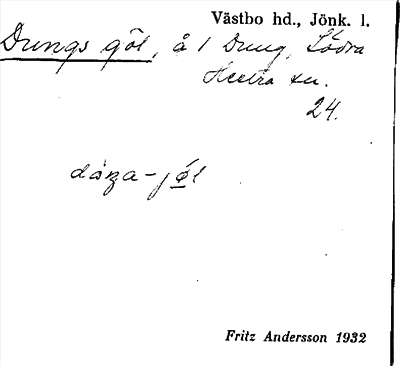 Västbo hd., Jönk. l.
Dungs göl, å 1 Dung, Södra
Hestra sn.
24.
Fritz Andersson 1932